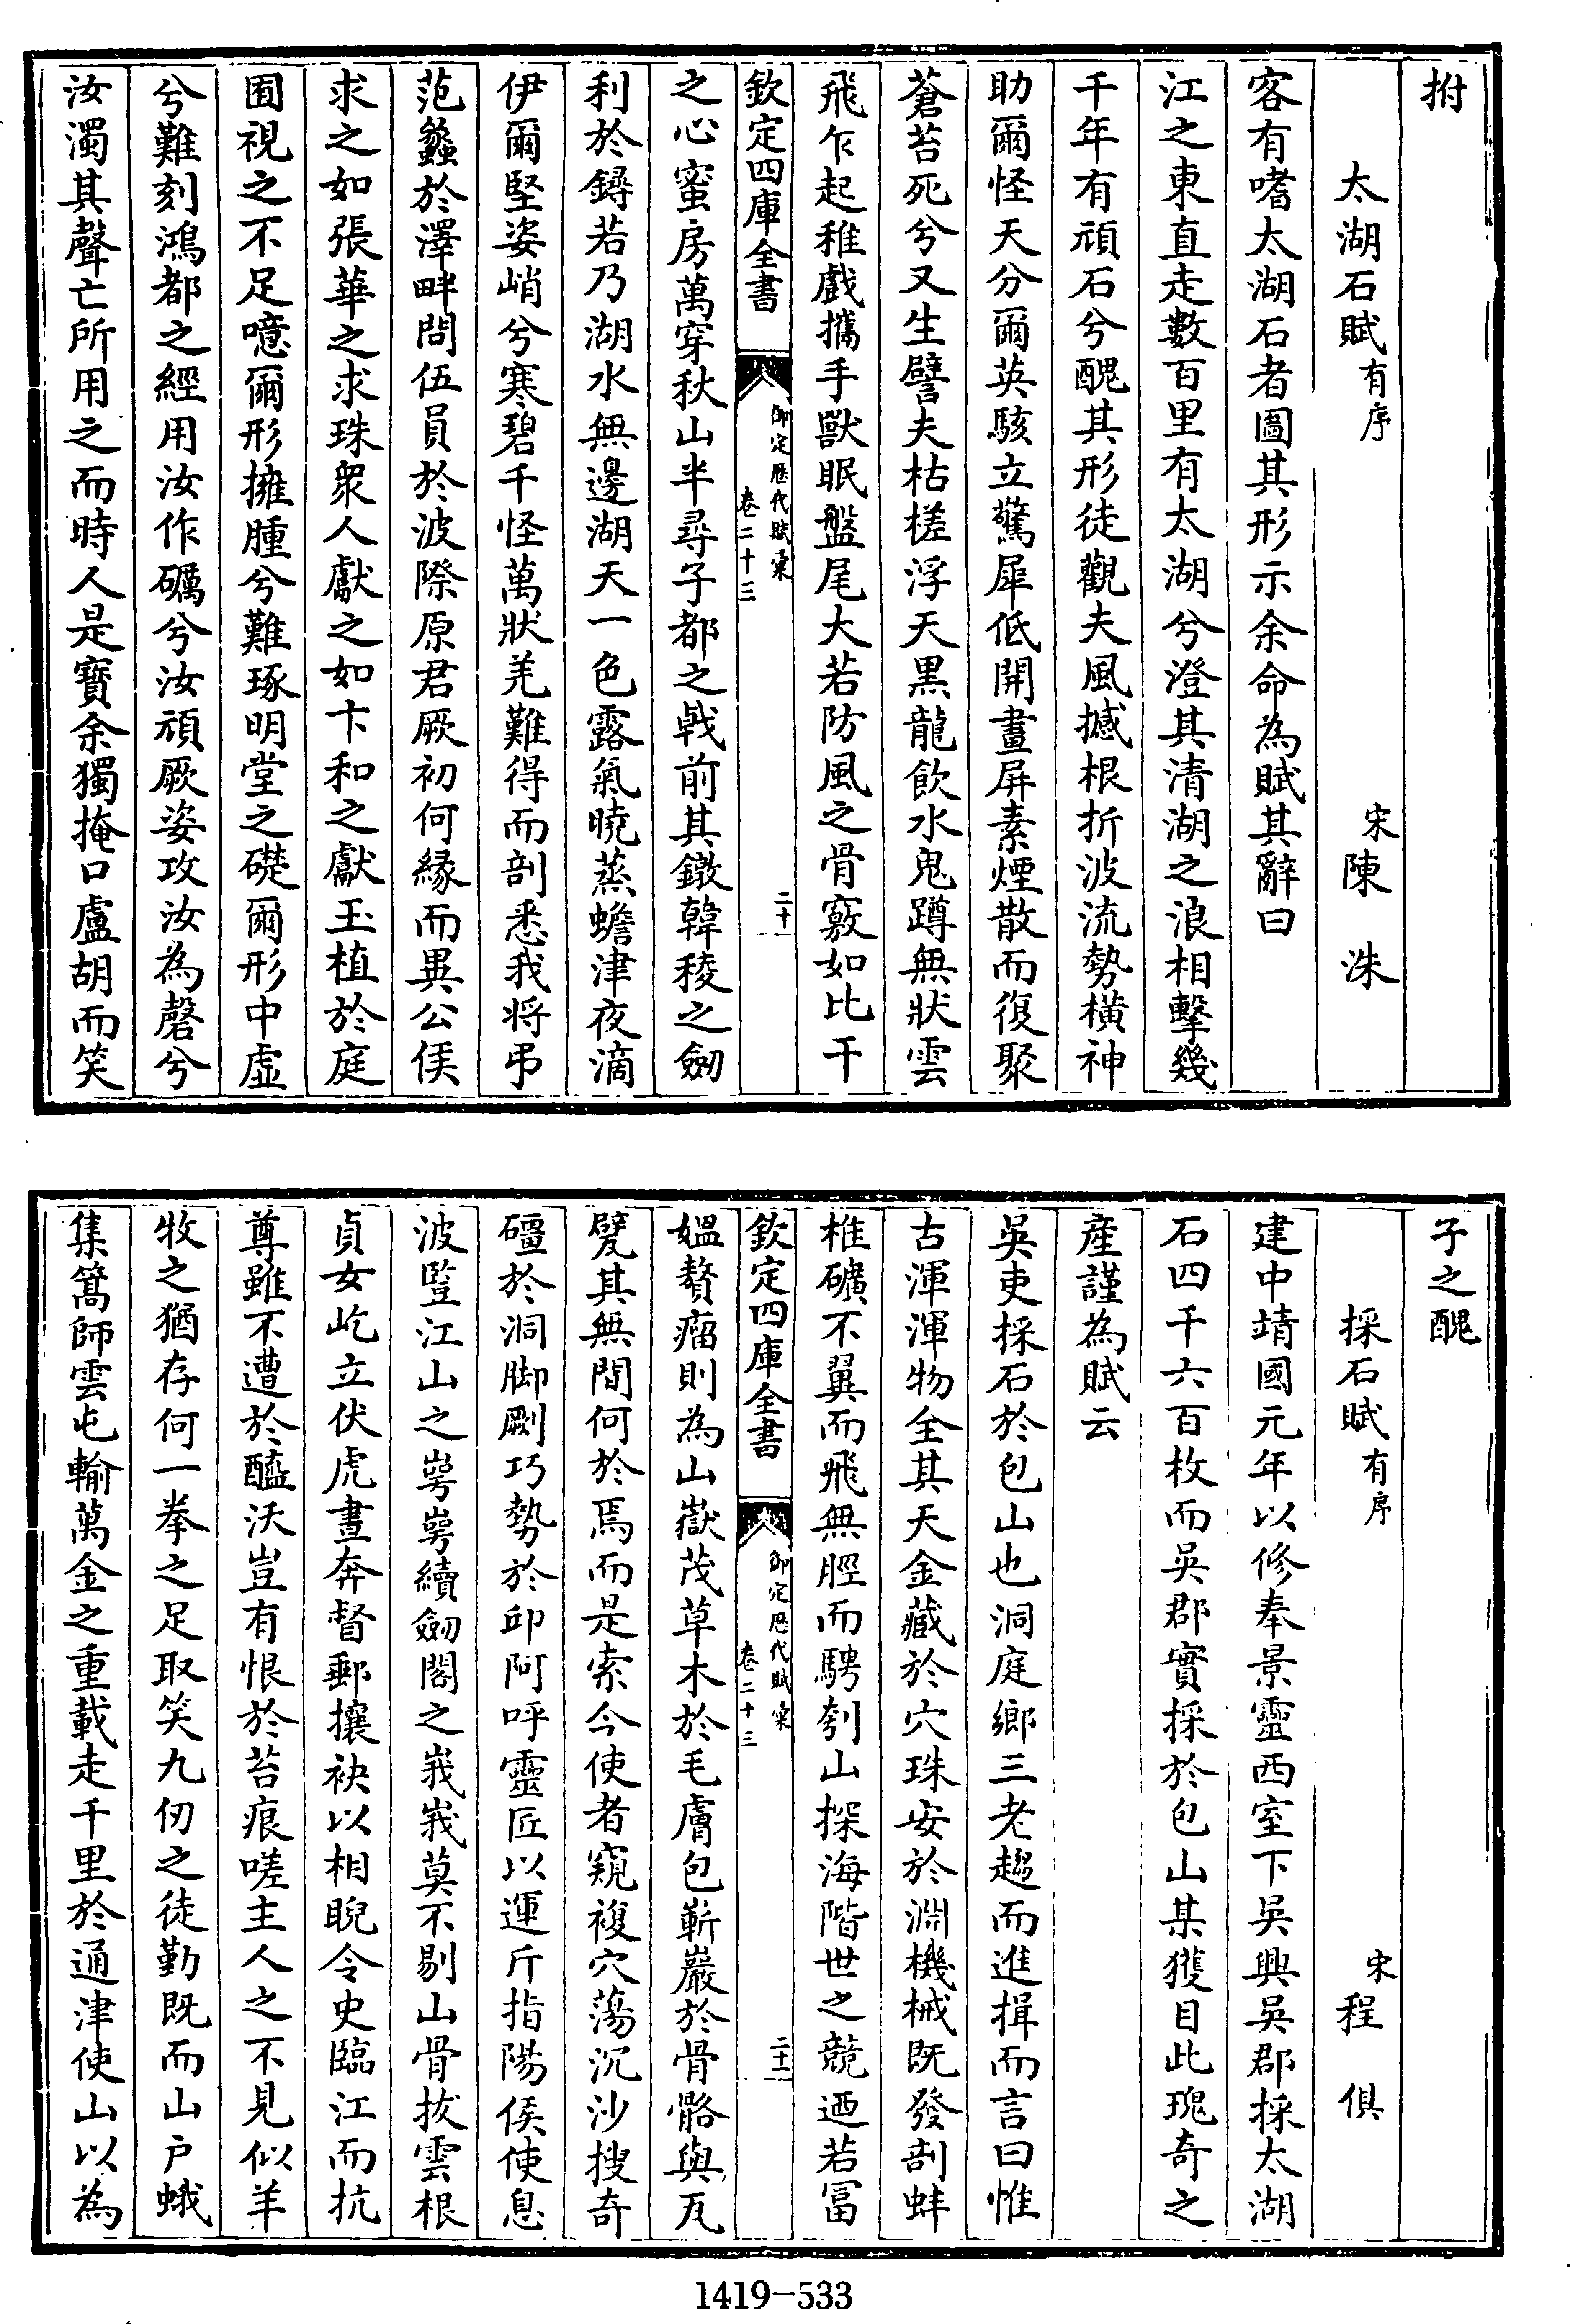 拊
太湖石賦有序 宋陳洙
客有嗜太湖石者圖其形示余命為賦其辭曰
江之東直走數百里有太湖兮澄其清湖之浪相擊幾
千年有頑石兮醜其形徒觀夫風撼根折波流勢橫神
助爾怪天分爾英駭立驚犀低開畫屏素煙散而復聚
蒼苔死兮又生譬夫枯槎浮天黑龍飲水鬼蹲無狀雲
飛乍起稚戲攜手獸眠盤尾大若防風之骨竅如比干
欽定四庫全書 御定歷代賦彙卷二十三 二十
之心蜜房萬穿秋山半尋子都之戟前其鐓韓稜之劒
利於鐏若乃湖水無邊湖天一色露氣曉蒸蟾津夜滴
伊爾堅姿峭兮寒碧千怪萬狀羌難得而剖悉我將弔
范蠡於澤畔問伍員於波際原君厥初何緣而異公侯
求之如張華之求珠衆人獻之如卞和之獻玉植於庭
囿視之不足噫爾形擁腫兮難琢明堂之礎爾形中虛
兮難刻鴻都之經用汝作礪兮汝頑厥姿攻汝為磬兮
汝濁其聲亡所用之而時人是寶余獨掩口盧胡而笑
子之醜
採石賦有序 宋程俱
建中靖國元年以修奉景靈西室下吳興吳郡採太湖
石四千六百枚而吳郡實採於包山某獲目此瑰奇之
產謹為賦云
吳吏採石於包山也洞庭鄉三老趨而進揖而言曰惟
古渾渾物全其天金藏於穴珠安於淵機械既發剖蚌
椎礦不翼而飛無脛而騁刳山探海階世之競迺若冨
媼贅瘤則為山嶽茂草木於毛膚包嶄巖於骨骼與瓦
甓其無間何於焉而是索今使者窺複穴蕩沉沙搜奇
礓於洞脚劂巧勢於邱阿呼靈匠以運斤指陽侯使息
波豎江山之崿崿續劒閣之峩峩莫不剔山骨拔雲根
貞女屹立伏虎晝奔督郵攘袂以相睨令史臨江而抗
尊雖不遭於醯沃豈有恨於苔痕嗟主人之不見似羊
牧之猶存何一拳之足取笑九仞之徒勤既而山戶蛾
集篙師雲屯輸萬金之重載走千里於通津使山以為
1419-533